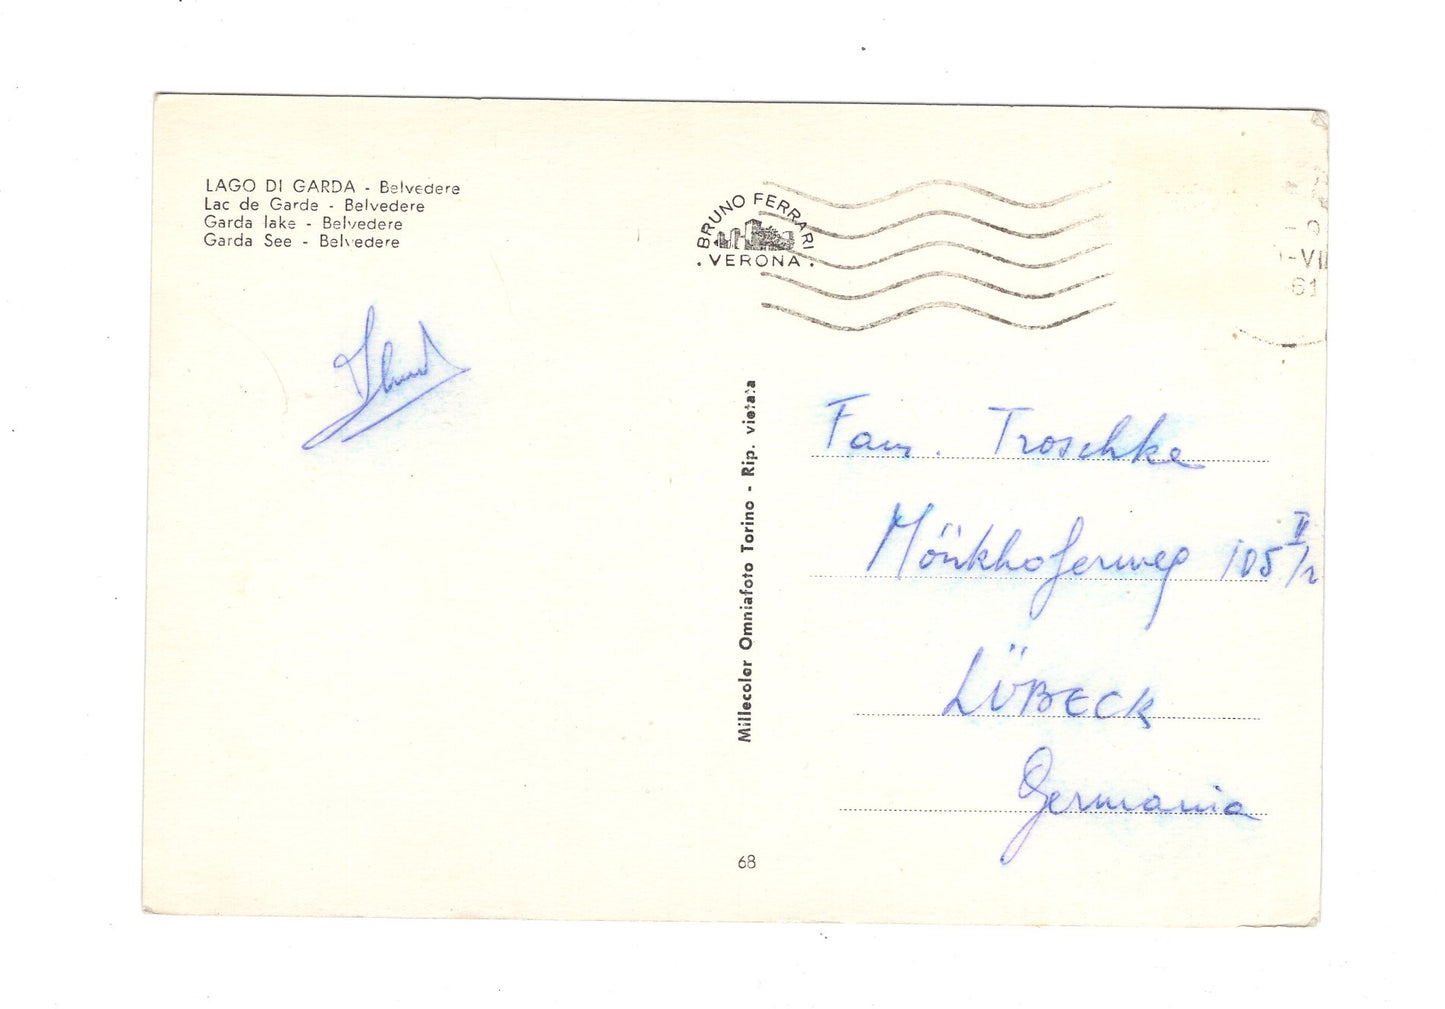 LAGO DI GARDA - Belvedere
Lac de Garde - Belvedere
Garda lake - Belvedere
Garda See - Belvedere
BRUNO FERRARI
. VERONA .
61
Millecolor Omniafoto Torino - Rip. vietata
Fam. Troschke
Mönkhoferweg 105
LÜBECK
Germania
68